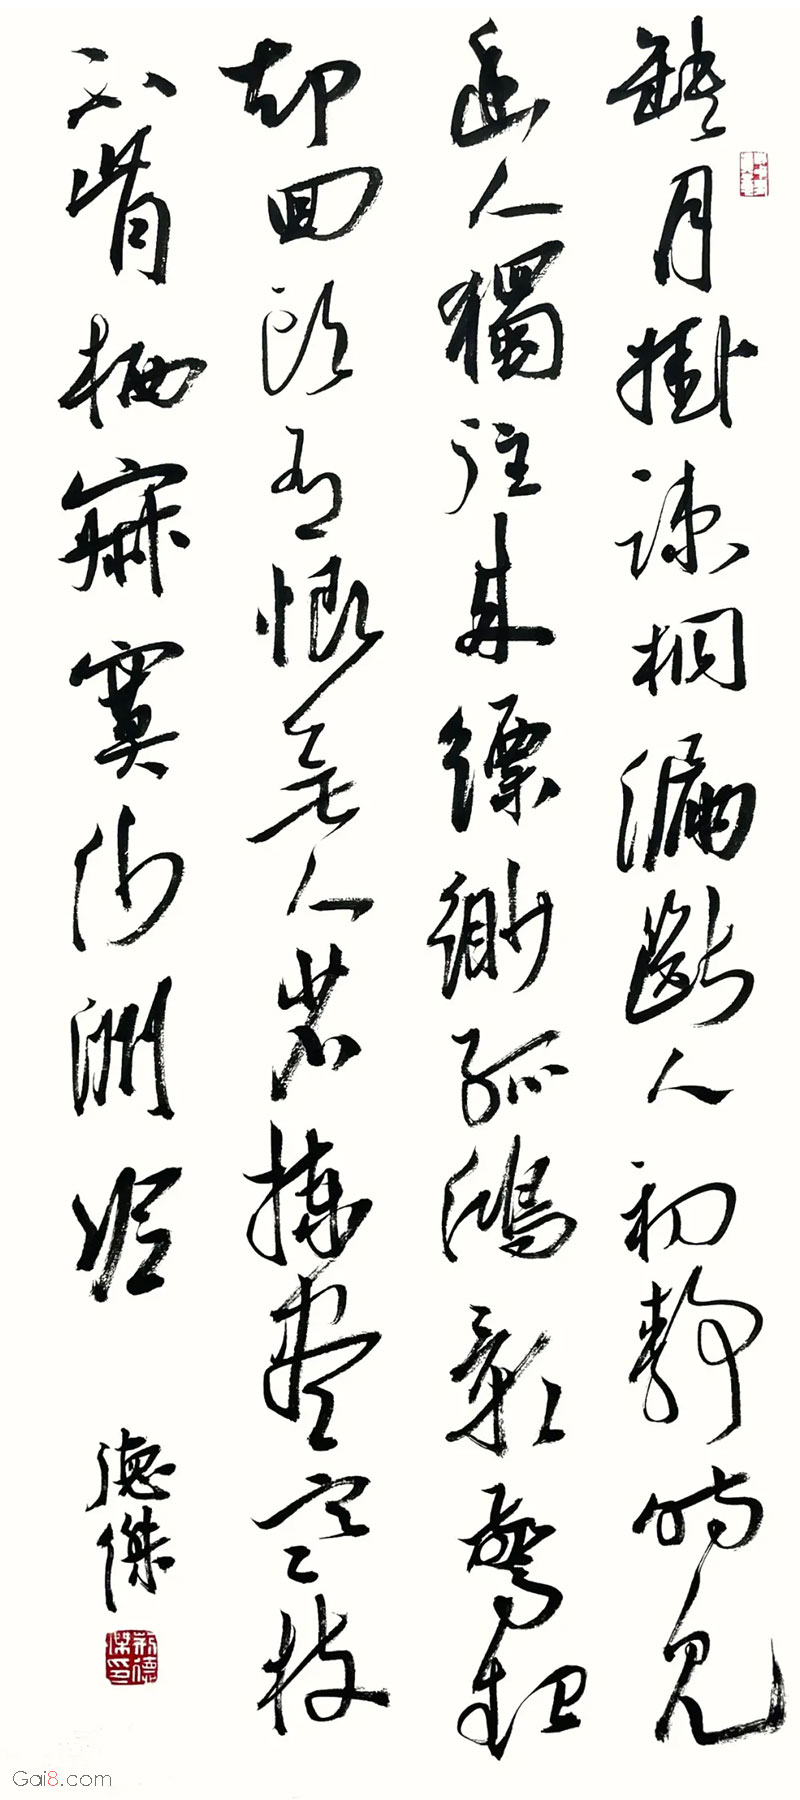 缺月掛疎桐漏斷人初靜時見
幽人獨往來縹緲孤鴻影驚起
却回頭有恨無人省揀盡寒枝
不肯栖寂寞沙洲冷
德傑
Gai8.com